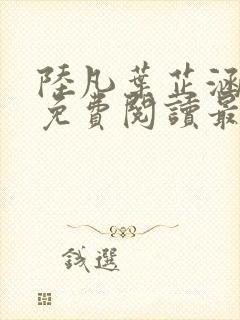 陸凡葉芷涵
免費閱讀最
錢選